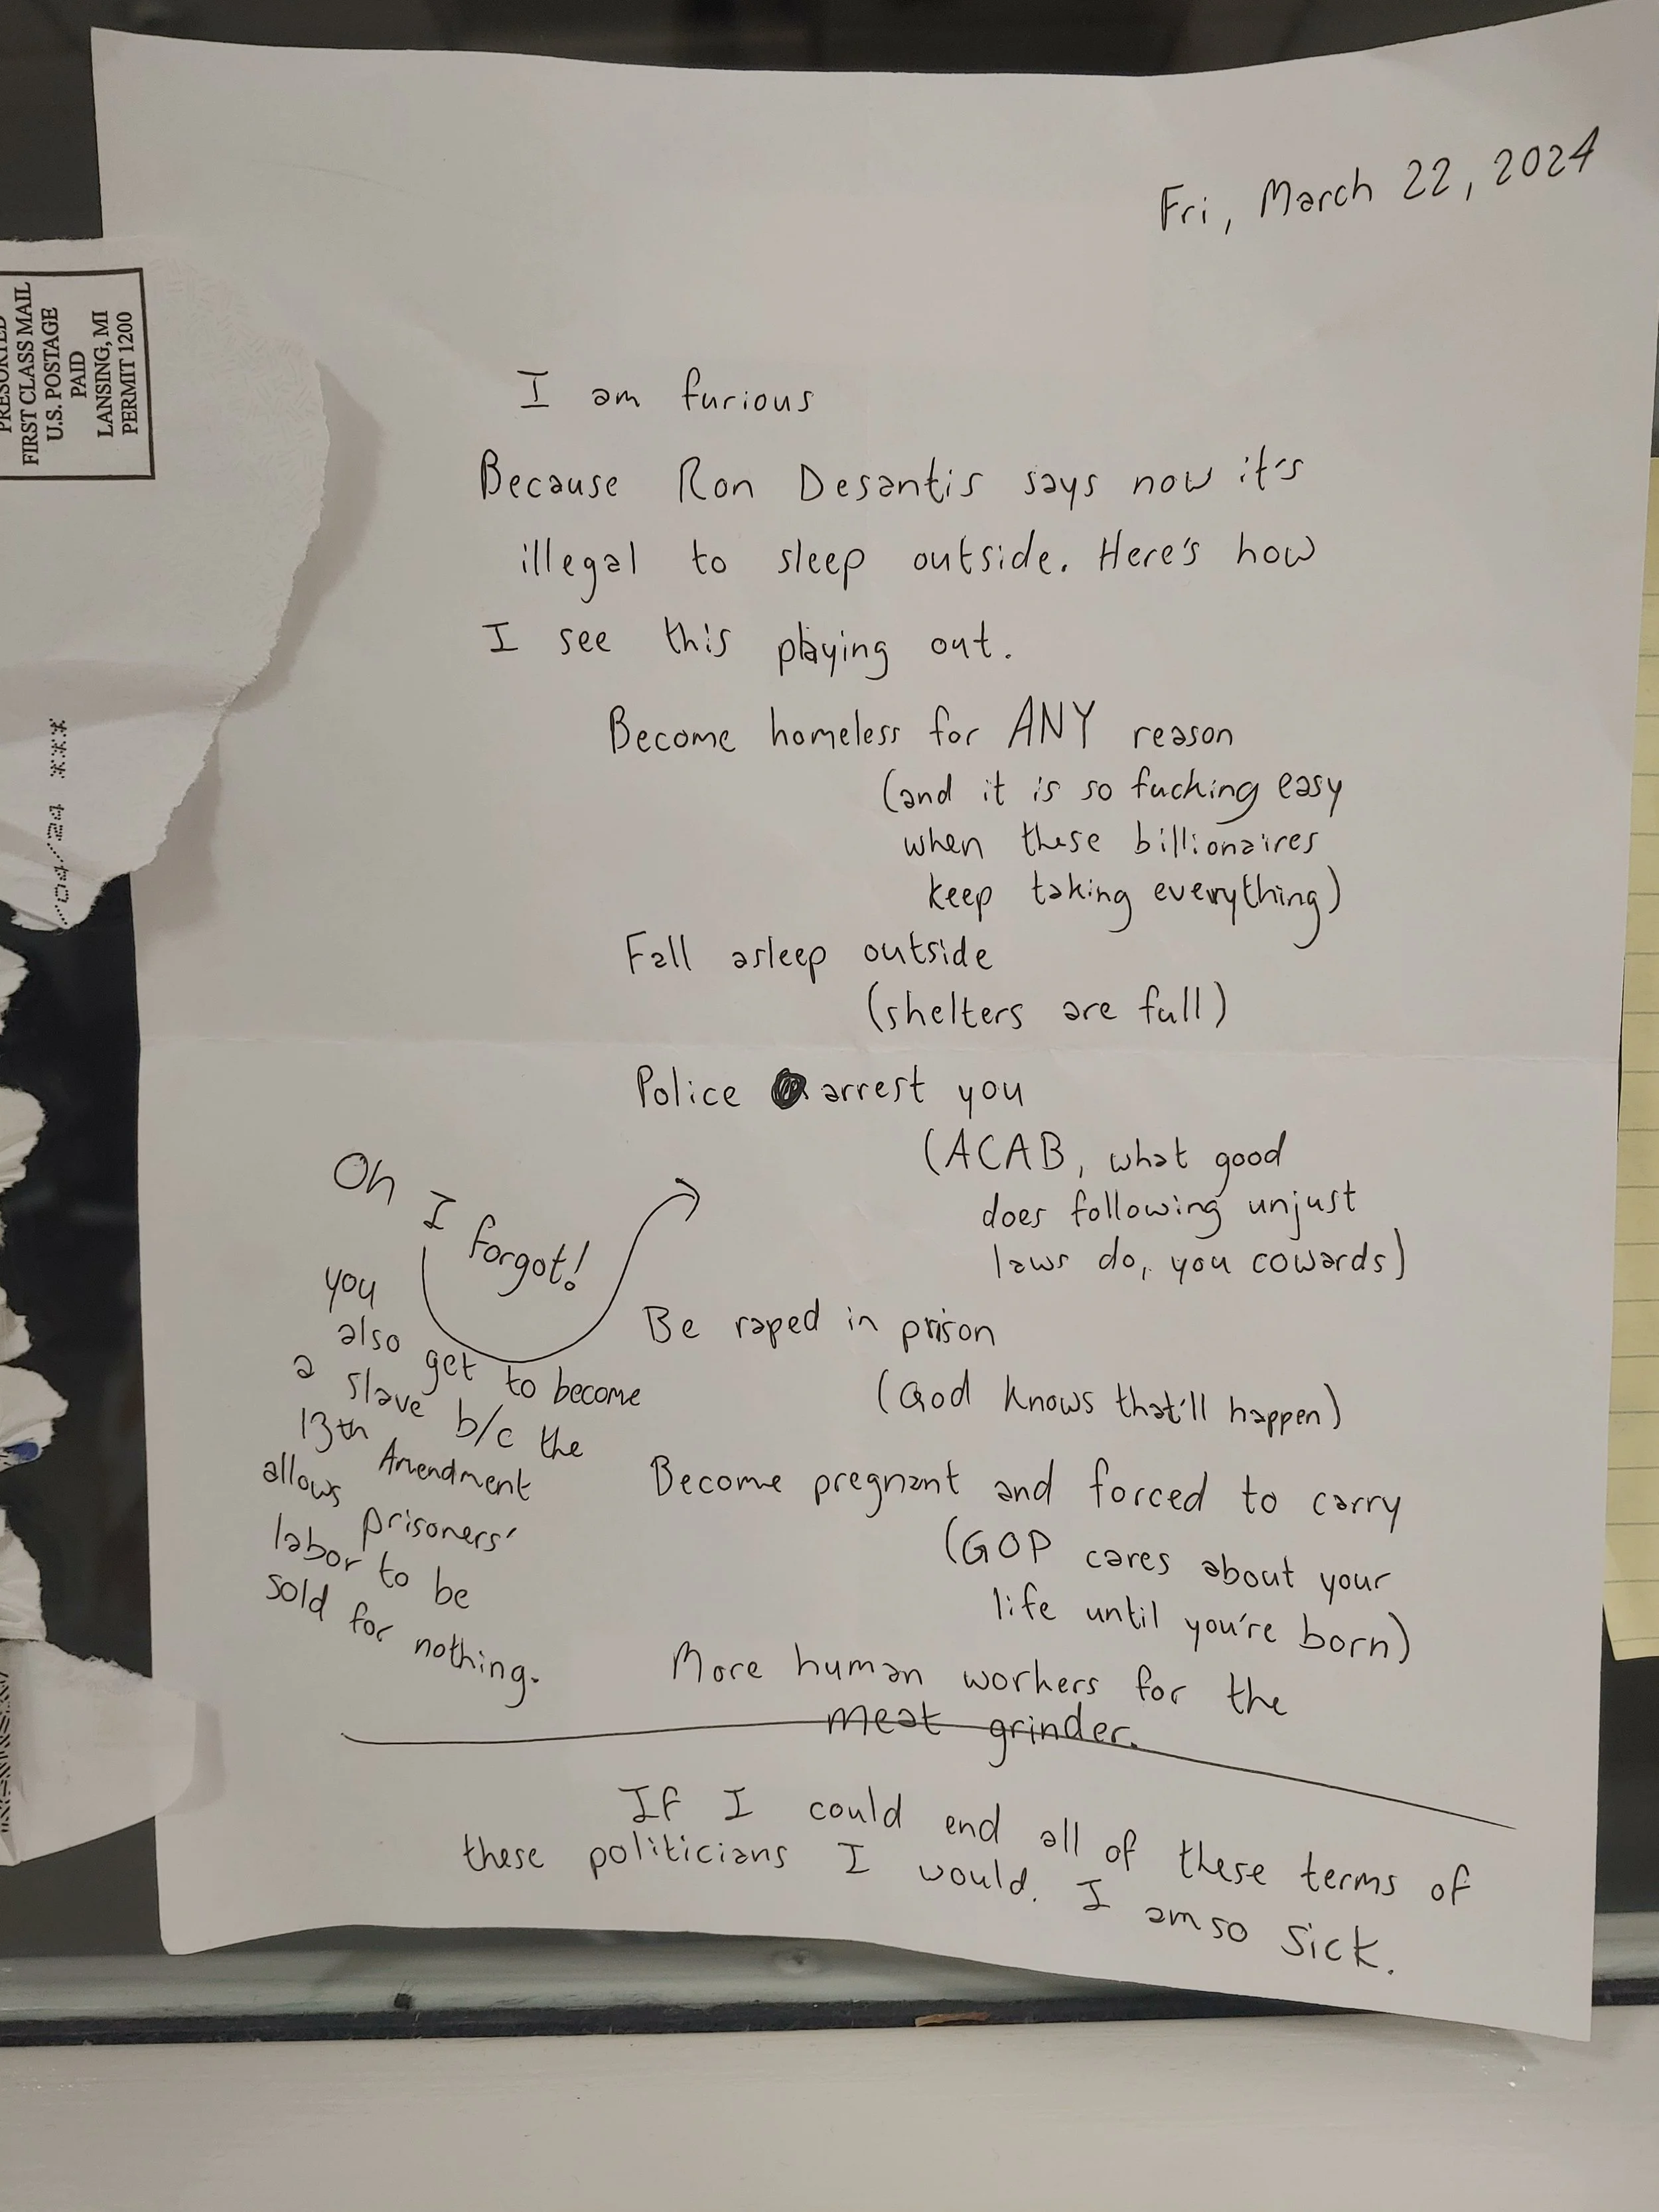 Fri, March 22, 2024
PRESORTED
FIRST CLASS MAIL
U.S. POSTAGE
PAID
LANSING, MI
PERMIT 1200
I am furious
Because Ron Desantis says now it's
illegal to sleep outside. Here's how
I see this playing out.
Become homeless for ANY reason
(and it is so fucking easy
when these billionaires
keep taking everything)
Fall asleep outside
(shelters are full)
Police arrest you
(ACAB, what good
does following unjust
laws do, you cowards)
Oh I forgot!
you
also get to become
a slave b/c the
13th Amendment
allows prisoners'
labor to be
sold for nothing.
Be raped in prison
(God knows that'll happen)
Become pregnant and forced to carry
(GOP cares about your
life until you're born)
More human workers for the
meat grinder.
If I could end all of these terms of
these politicians I would. I am so sick.